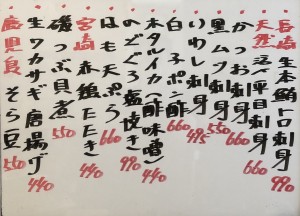 長崎 生本鮪トロ刺身 990
天然 活〆平目刺身 660
かつお刺身 660
黒ムツ刺身 550
いわし刺身 495
白子ポン酢 660
ホタルイカ(酢味噌) 440
のどぐろ塩焼き 990
はも天ぷら 660
宮崎 赤鶏たたき 440
磯つぶ貝煮 550
生ワカサギ唐揚げ 440
鹿児島 そら豆 550